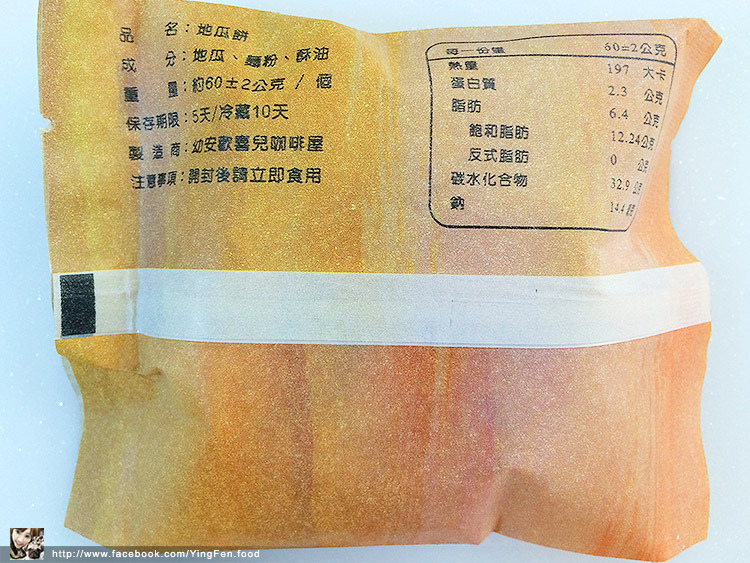 品 名：地瓜餅
成 分：地瓜、麵粉、酥油
重 量：約60±2公克 / 個
保存期限：5天/冷藏10天
製 造 商：幼安歡喜兒咖啡屋
注意事項：開封後請立即食用
每一份量 60±2公克
熱量 197 大卡
蛋白質 2.3 公克
脂肪 6.4 公克
飽和脂肪 12.24公克
反式脂肪 0 公克
碳水化合物 32.9 公克
鈉 144 毫克
http://www.facebook.com/YingFen.food